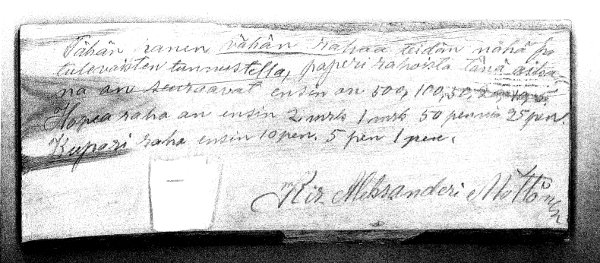 Tähän panen vähän rahaa teidän nähä ja
tulevaisten tunnustella, paperi rahoista tänä aika
na on seuraavat ensin on 500, 100, 50,
Hopea raha on ensin 2 mrk 1 mrk 50 penniä 25 pen.
Kupari raha ensin 10 pen. 5 pen 1 pen.
Kir Aleksanderi Möttönen